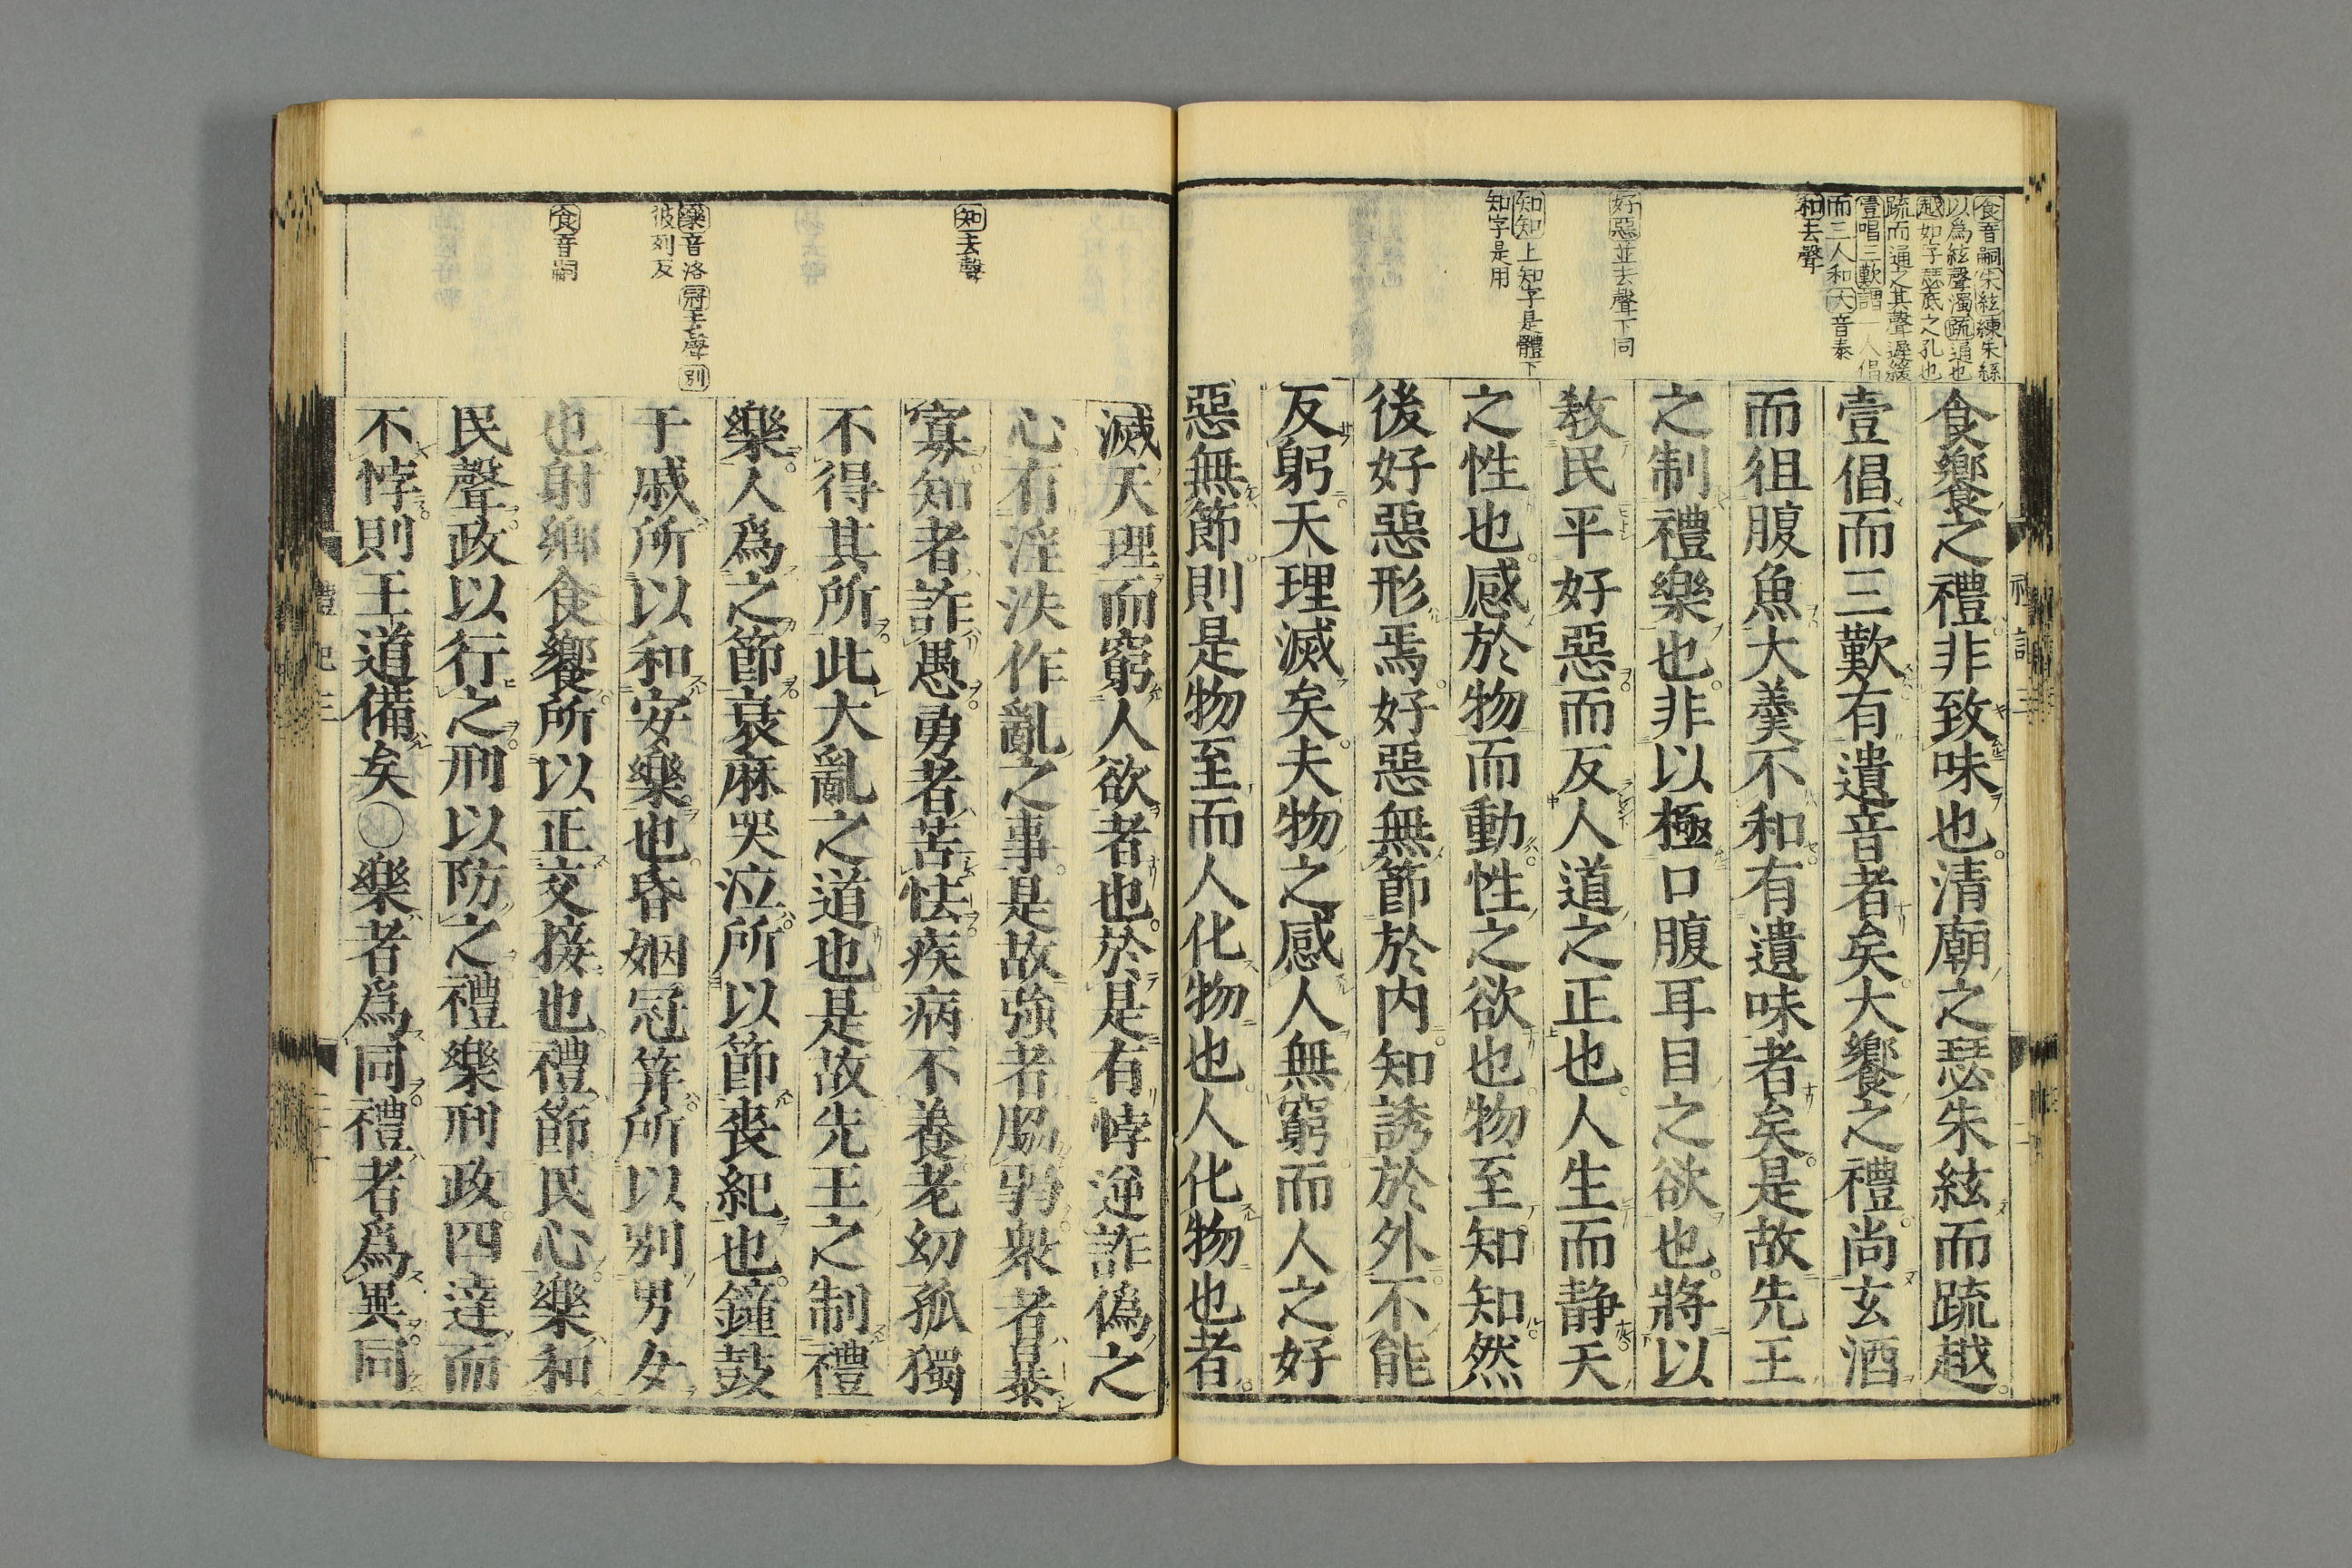 食音嗣朱絃練朱絲
以為絃聲濁疏通也
越如字瑟底之孔也
疏而通之其聲遲緩
壹唱三歎謂一人倡
而三人和大音泰
和去聲
好惡並去聲下同
知知上知字是體下
知字是用
食饗之禮非致味也。清廟之瑟朱絃而疏越。
壹倡而三歎有遺音者矣。大饗之禮尚玄酒
而俎腹魚大羹不和有遺味者矣。是故先王
之制禮樂也。非以極口腹耳目之欲也。將以
教民平好惡而反人道之正也。人生而静天
之性也。感於物而動性之欲也。物至知知然
後好惡形焉。好惡無節於内知誘於外不能
反躬天理滅矣。夫物之感人無窮而人之好
惡無節。則是物至而人化物也。人化物也者。
知去聲
樂音洛冠去聲別
彼列反
食音嗣
滅天理而窮人欲者也。於是有悖逆詐偽之
心有淫泆作亂之事。是故強者脇弱衆者暴
寡知者詐愚勇者苦怯疾病不養老幼孤獨
不得其所此大亂之道也。是故先王之制禮
樂人爲之節衰麻哭泣所以節喪紀也。鐘鼓
干戚所以和安樂也。昏姻冠笄所以別男女
也射鄉食饗所以正交接也。禮節民心樂和
民聲政以行之刑以防之禮樂刑政四達而
不悖則王道備矣〇樂者爲同禮者爲異同
禮記三